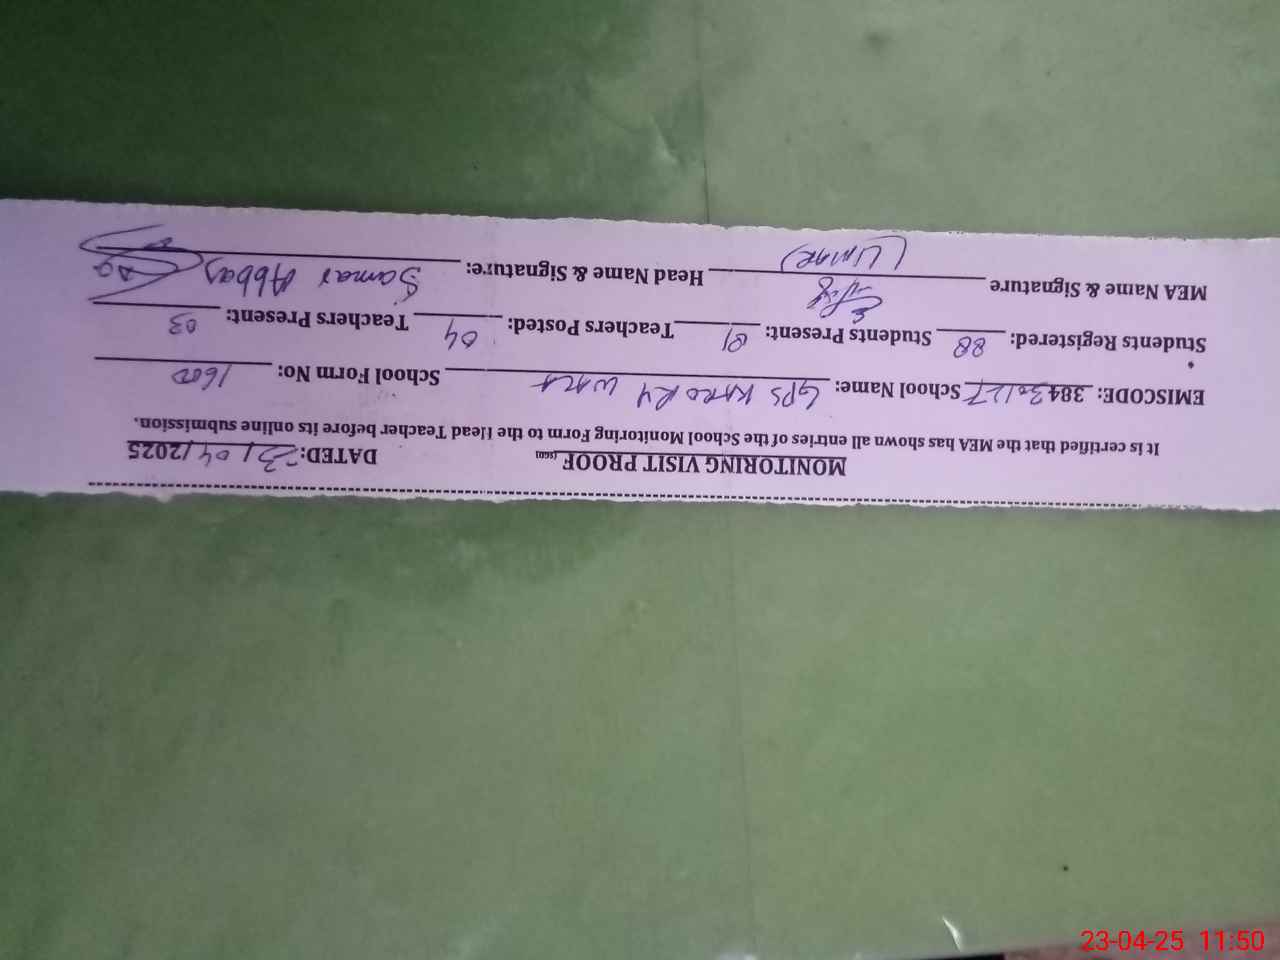 MONITORING VISIT PROOF DATED: 23/04/2025
It is certified that the MEA has shown all entries of the School Monitoring Form to the Head Teacher before its online submission.
EMISCODE: 38430127 School Name: GPS KARORY WALA School Form No: 1600
Students Registered: 88 Students Present: 81 Teachers Posted: 04 Teachers Present: 03
MEA Name & Signature (UMAR) Head Name & Signature: Samar Abbas
23-04-25 11:50